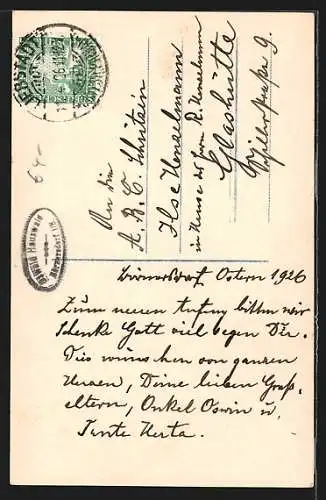 An die
A. B. C. Schützin
Ilse Henzelmann
im Hause des Herrn R. Henzelmann
Glashütte
Schillerstraße 9.
64-
Oswald Hauswald
Börnersdorf Ostern 1926
Zum neuen Anfang bitten wir
Schenke Gott viel Segen Dir.
Dies wünschen von ganzen
Herzen, Deine lieben Groß-
eltern, Onkel Oswin u.
Tante Herta.